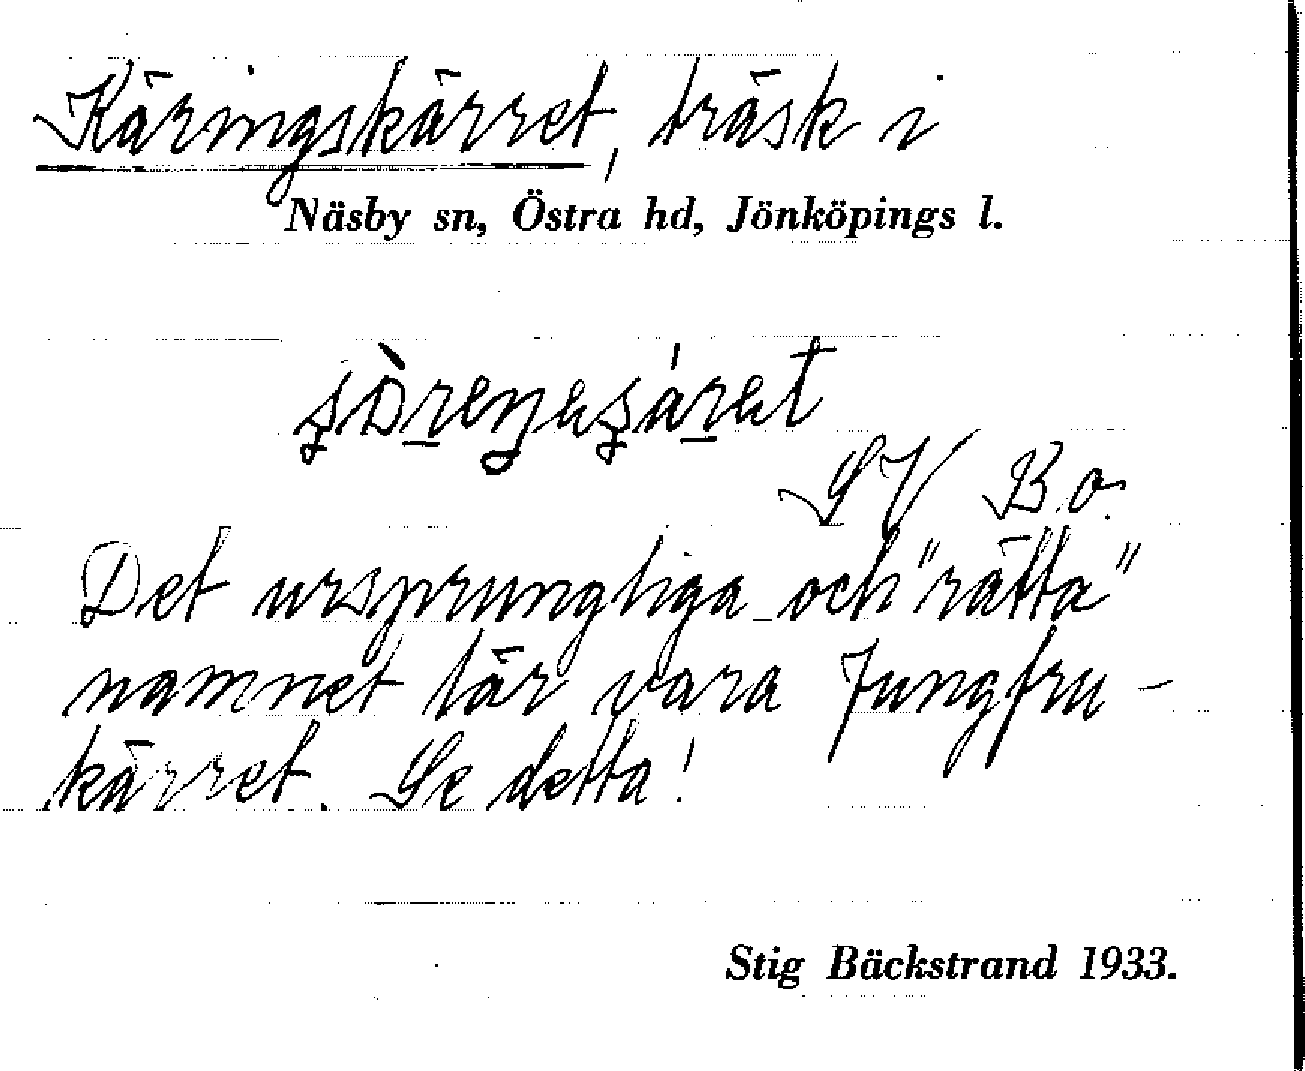 Käringskärret, träsk i
Näsby sn, Östra hd, Jönköpings l.
SV B.o.
Det ursprungliga och "rätta"
namnet lär vara Jungfru-
kärret. Se detta!
Stig Bäckstrand 1933.